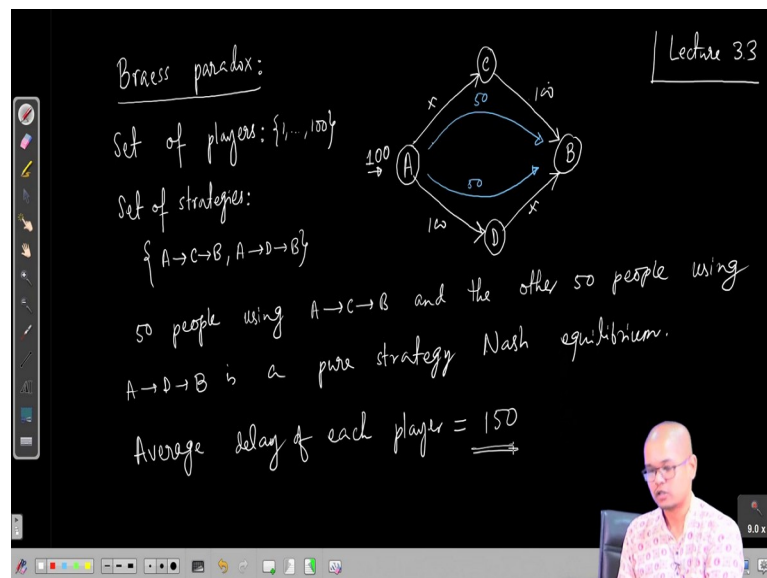 Lecture 3.3
Braess paradox:
Set of players: {1,..., 100}
Set of strategies:
{ A→C→B, A→D→B}
C
x
50
100
100
A
B
50
100
x
D
50 people using A→C→B and the other 50 people using
A→D→B is a pure strategy Nash equilibrium.
Average delay of each player = 150
9.0 x